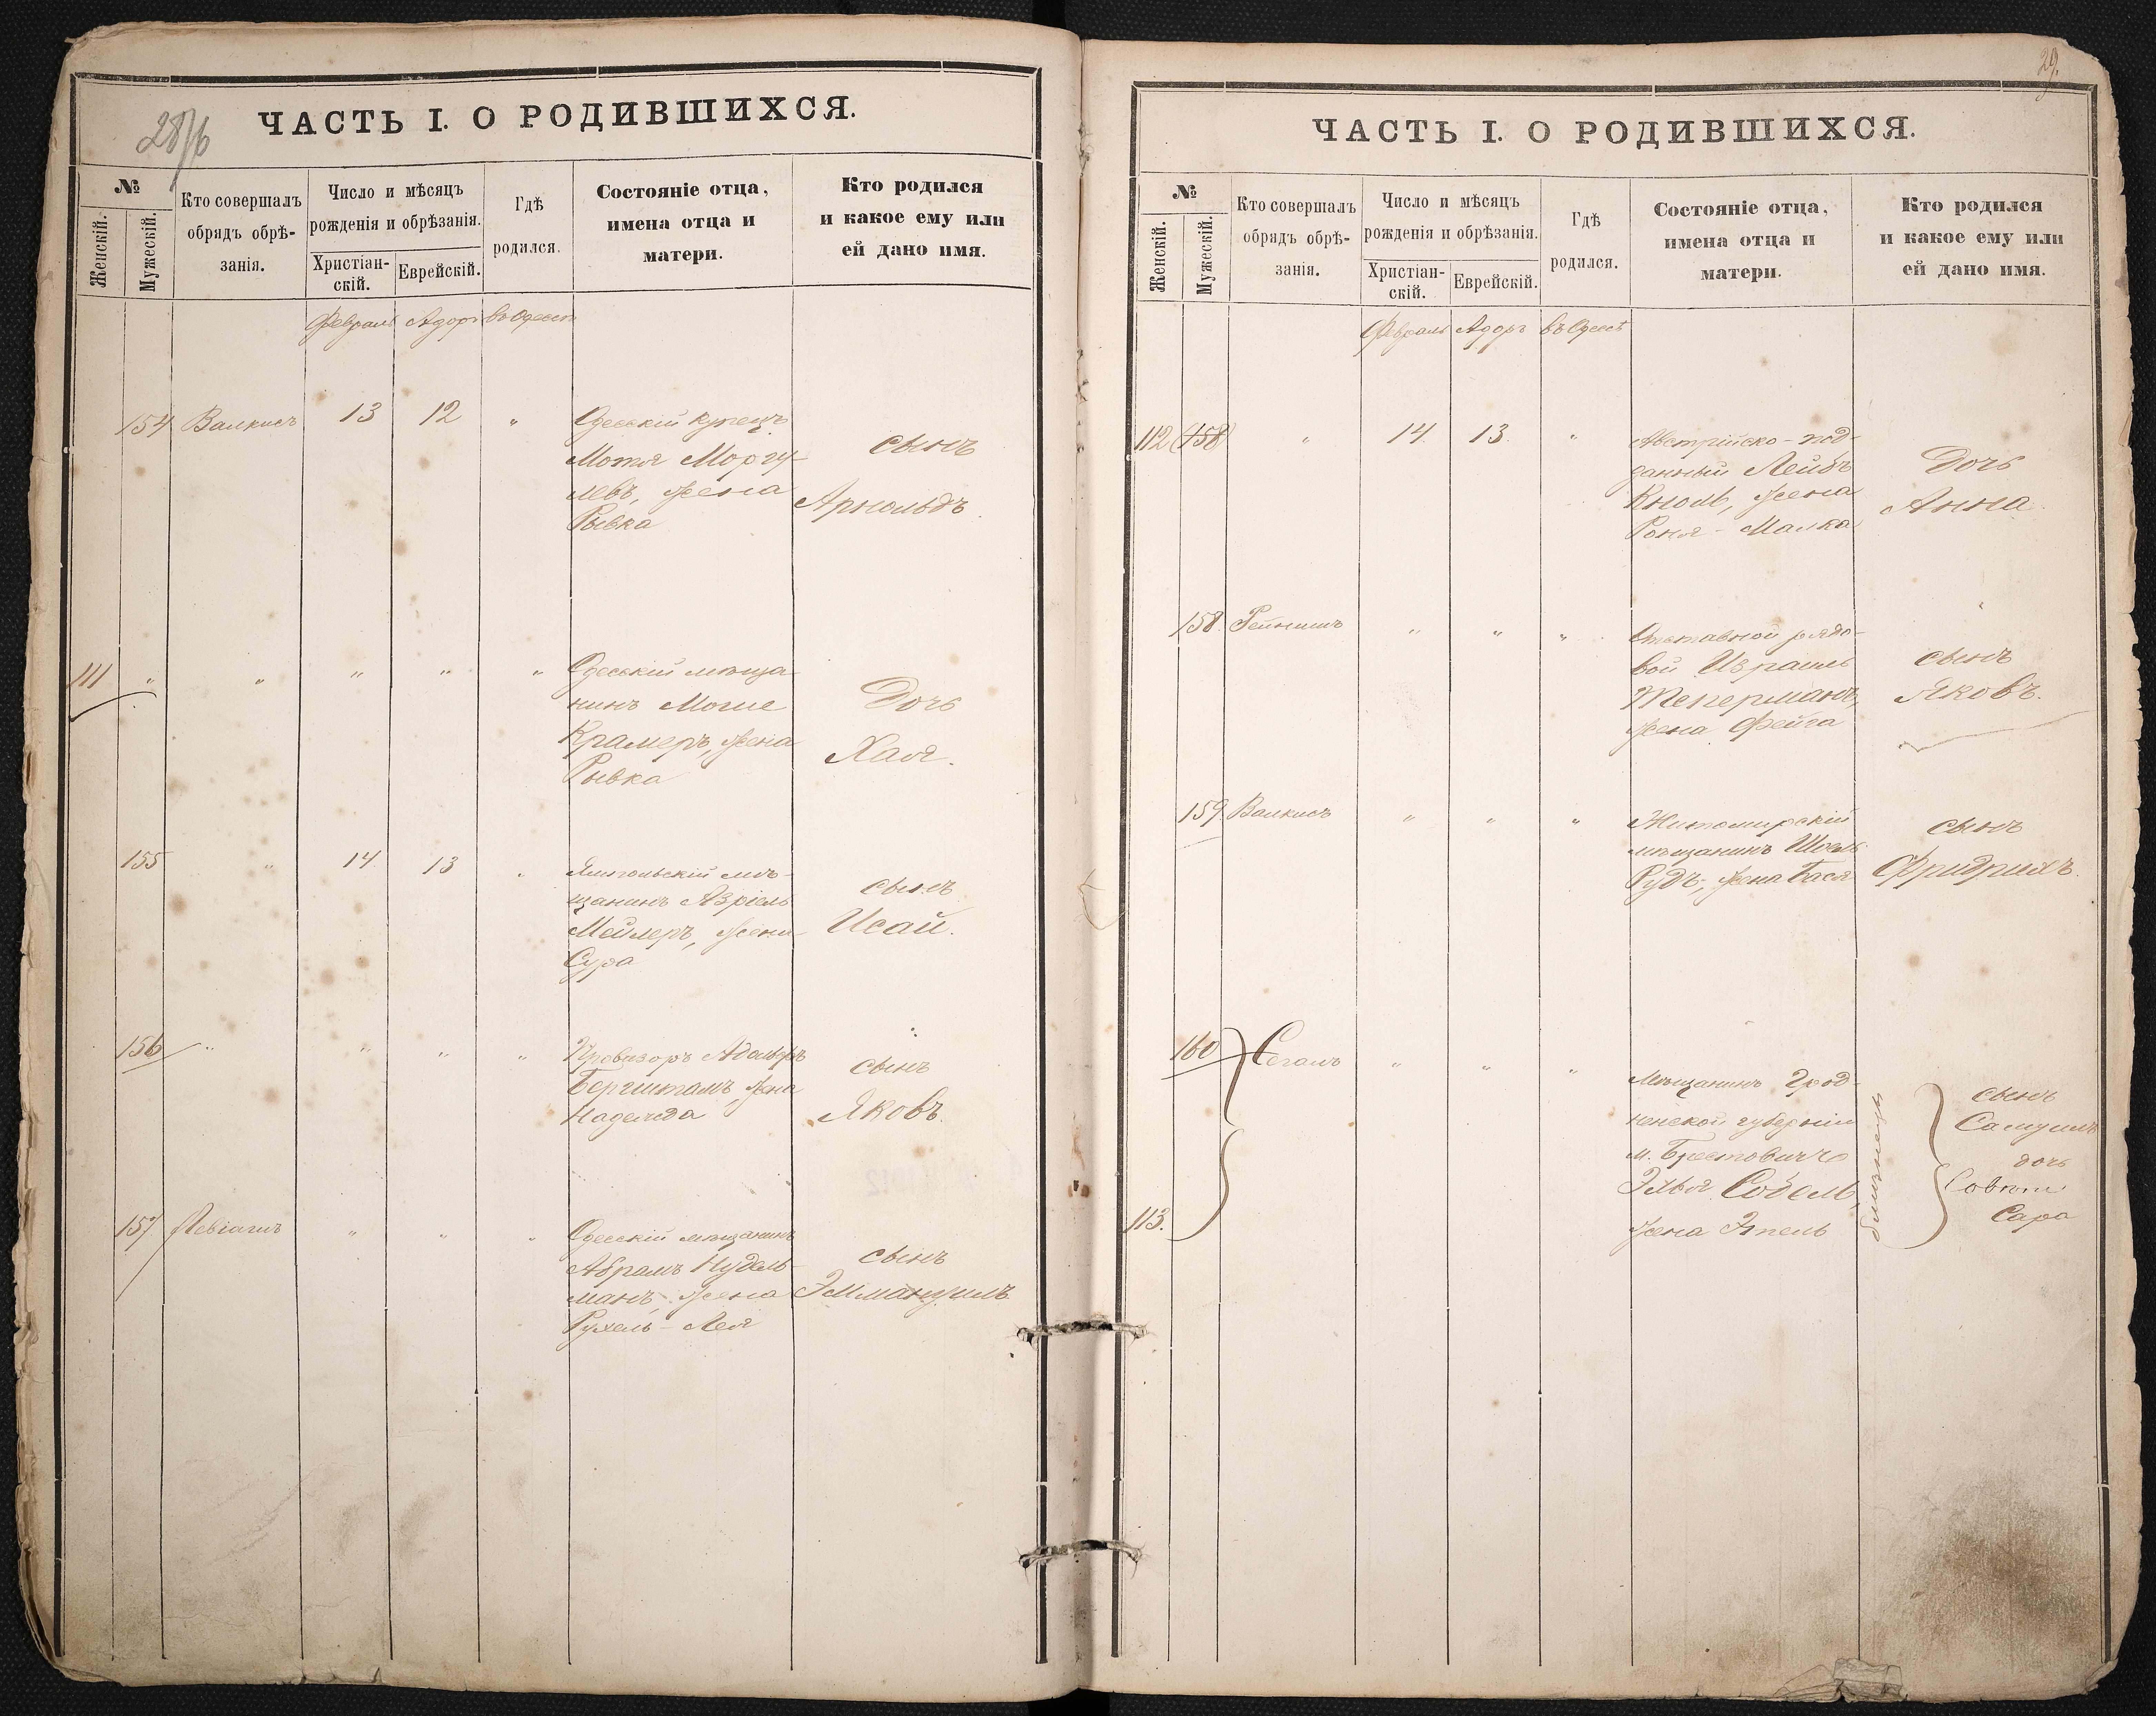 28/б
ЧАСТЬ I. О РОДИВШИХСЯ.
№
Женскій.
Мужескій.
Кто совершалъ
обрядъ обрѣ-
занія.
Число и мѣсяцъ
рожденія и обрѣзанія.
Христіан-
скій.
Еврейскій.
Гдѣ
родился.
Состояніе отца,
имена отца и
матери.
Кто родился
и какое ему или
ей дано имя.
Февраль Адоръ въ Одессѣ
154 Валкисъ 13 12 "
Одесскій купецъ
Мотя Моргу-
левъ, жена
Рывка
сынъ
Арнольдъ
111 " " " " "
Одесскій мѣща-
нинъ Мошe
Крамеръ, жена
Рывка
Дочь
Хая.
155 " 14 13 "
Ямпольскій мѣ-
щанинъ Азріель
Мейлеръ, жена
Сура
сынъ
Исай.
156 " " " "
Провизоръ Адольфъ
Бергшталъ, жена
Надежда
сынъ
Яковъ.
157 " " "
Одесскій мѣщанинъ
Абрамъ Нудель-
манъ, жена
Рухель-Лея
сынъ
Эммануилъ
29.
ЧАСТЬ I. О РОДИВШИХСЯ.
№
Женскій.
Мужескій.
Кто совершалъ
обрядъ обрѣ-
занія.
Число и мѣсяцъ
рожденія и обрѣзанія.
Христіан-
скій.
Еврейскій.
Гдѣ
родился.
Состояніе отца,
имена отца и
матери.
Кто родился
и какое ему или
ей дано имя.
Февраль Адоръ въ Одессѣ
112 (158) " 14. 13. "
Австрійско-под-
данный Лейбъ
Кноль, жена
Роня-Малка
Дочь
Анна.
158. " " "
Отставной рядо-
вой Израиль
Теперманъ,
жена Фейга
сынъ
Яковъ.
159. Валкисъ " " "
Житомирскій
мѣщанинъ Шоель
Рудъ, жена Бася
сынъ
Фридрихъ.
160 Сегалъ " " "
113.
Мѣщанинъ Грод-
ненской губерніи
м. Брестовичъ
Элья Собель,
жена Этель
близнецы
сынъ
Самуилъ
дочь
Сара